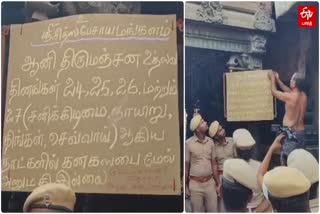 ஸ்ரீசித்ஸபேசாய மங்களம்
ஆனி திருமஞ்சன உற்சவ
தினங்கள் 24, 25, 26, மற்றும்
27 (சனிக்கிழமை ஞாயிறு,
திங்கள், செவ்வாய்) ஆகிய
நாட்களில் கனகஸபை மேல்
அனுமதி இல்லை
etv
BHARAT